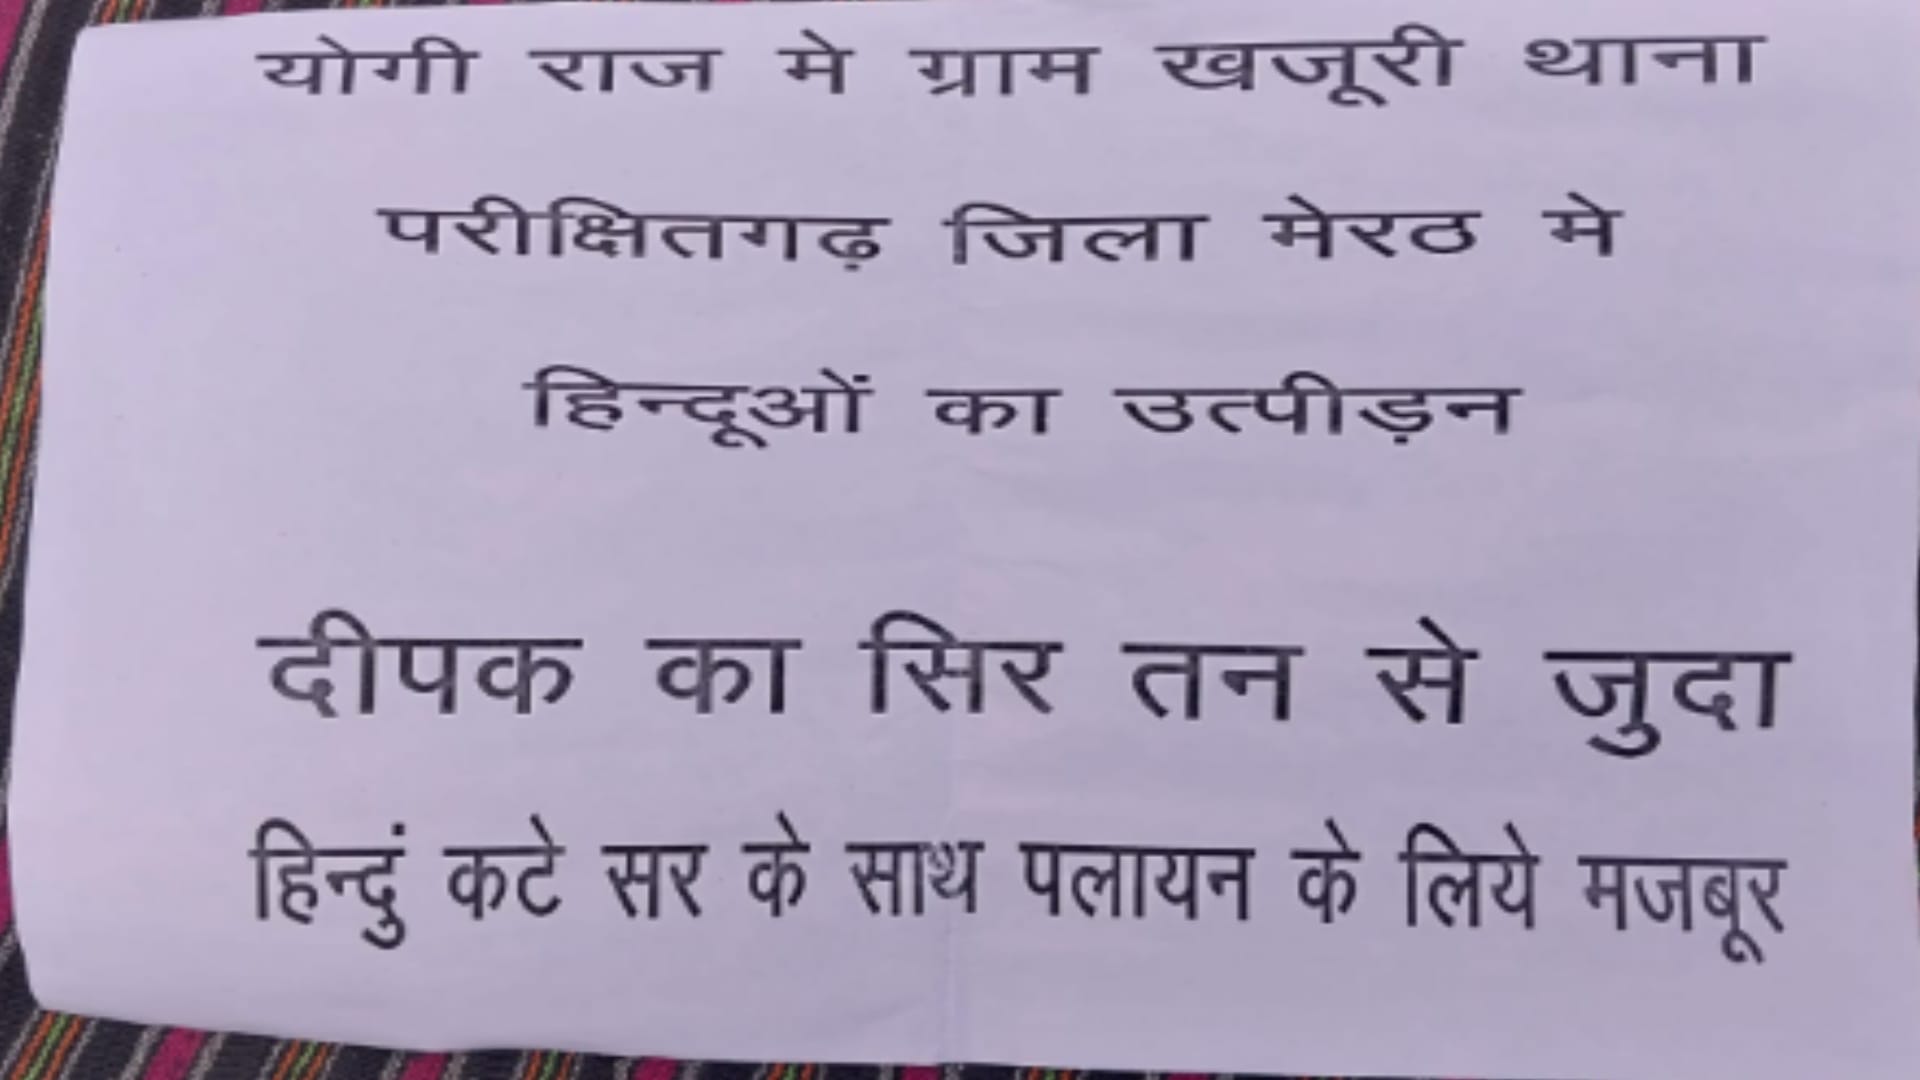 योगी राज मे ग्राम खजूरी थाना
परीक्षितगढ़ जिला मेरठ मे
हिन्दूओं का उत्पीड़न
दीपक का सिर तन से जुदा
हिन्दुं कटे सर के साथ पलायन के लिये मजबूर